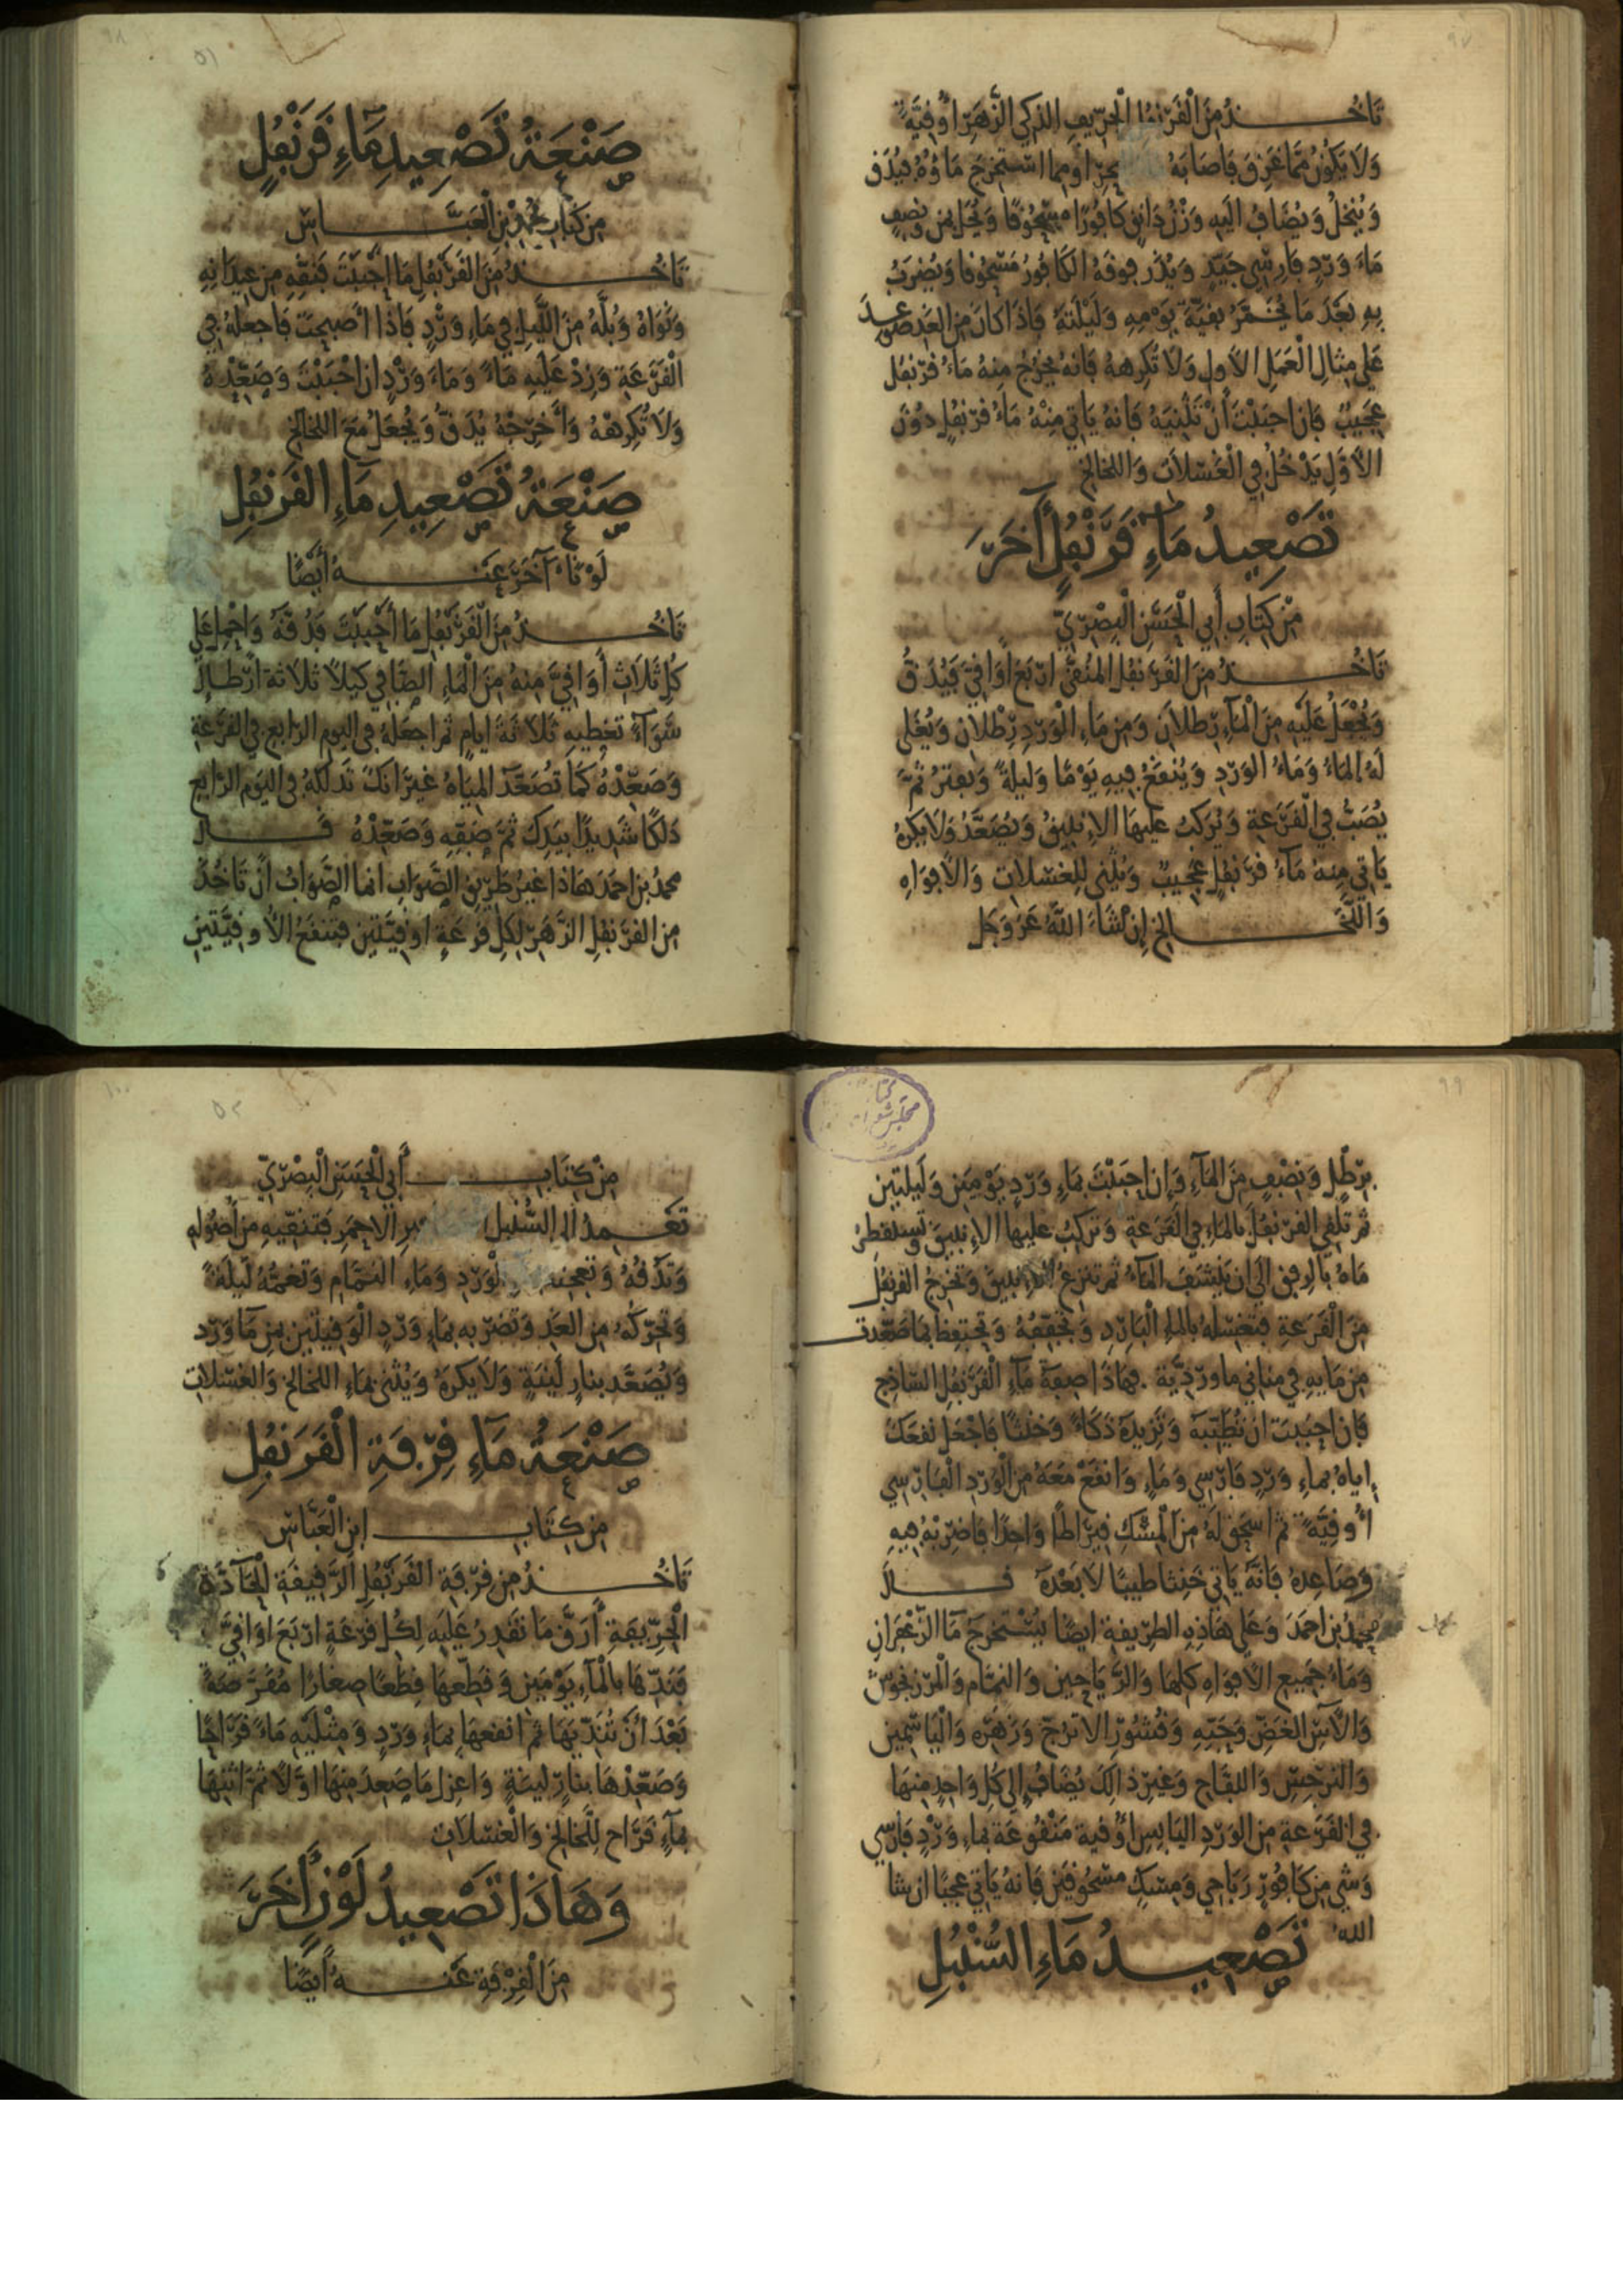 ٩٧
تَاخُذُ مِنَ الْقَرَنْفُل الْحِرّيفِ الذكي الزَهَرِ اُوقِيَّةً
وَلَا يَكُونُ مِمَّا غَرِقَ فَاصَابَهُ بحر او مما استخرج مَاؤُهُ فيُدَق
وَيُنخلُ وَيُضَافُ اليَهِ وَزْنُ دَانِقٍ كَافُورًا مسْحُوقًا وَيُحَل من نصفِ
مَاءَ وَرْدٍ فَارِسِّي جَيّدٍ وَيُذَر فوقَهُ الكَافورُ مَسْحُوقا وَيُضرَبُ
بِهِ بعْدَ مَا يُخَمَّرُ بقيَّةَ يَوْمِهِ وَلَيْلَتَهُ فاذَا كَانَ مِنَ الغَدِ صعد
عَلي مِثالِ الْعَمَلِ الاوَلِ وَلَا تُكرِههُ فَانهُ يخرُج مِنهُ مَاءُ قرَنفُل
عَجيبٌ فَان احبَبْتَ أنْ تُثنِيَهُ فَانهُ يَاتي مِنْهُ مَاءُ قرَنفُل دُوْنَ
الأوَّلِ يَدْخُلُ فِي الْغُسْلَات وَاللخالخ
تَصْعِيدُ مَاءِ قَرَنْفُلٍ آخَرَ
مِنْ كِتَابِ أبي الْحَسَن الْبصْرِيّ
تَاخُذُ مِنَ القَرَنفُل المُنقَّى اربَعَ أوَاقِيَّ فيُدَقُ
وَيُجْعَلُ عَلَيْهِ مِنَ الْمَآءِ رطلَانِ وَمِن مَاءِ الْوَرْدِ رِطْلَان وَيُغلى
لَهُ المَاءُ وَمَاءُ الوَرْدِ وَيُنقَعُ فِيهِ يَوْمًا وَليلةً وَيفترُ ثمَّ
يُصَبُّ فِي القَرَعَةِ وَيُرَكبُ عَليهَا الإنبيقُ وَيُصَعَّدُ وَلا يكرهُ
يَاتي مِنهُ مَآءُ قَرَنْفُلٍ عَجيبٌ وَيُثنى للغسْلَاتِ وَالأفوَاهِ
وَاللَّخَالخ إن شَاءَ اللهُ عَزَ وَجَل
٩٨
٥١
صَنْعَةُ تَصْعِيدِ مَاءِ قَرَنْفُلٍ
مِن كتابِ محمد بْنِ الْعَبَّاسْ
تَاخُذُ مِنَ القَرَنْفُلِ مَا احْبَبْتَ فَنَقّهِ مِن عِيدَانِهِ
وَنَوَاهُ وَبُلَّهُ مِنَ اللَّيلِ في مَاءِ وَرْدٍ فَاذا أصبحتَ فَاجعَلهُ في
الْقَرَعَةِ وَزِدْ عَلَيهِ مَاءً وَمَاءَ وَرْدٍ ان احْبَبْتَ وَصَعِّدْهُ
وَلَا تُكرِههُ وَأخرِجْهُ يُدَقُّ وَيُجْعَلُ مَعَ اللخالخ
صَنْعَةُ تَصْعِيدِ مَآءِ القَرَنفُلِ
لَوْنًا آخَرَ عَنهُ أيْضًا
تَاخُذُ مِنَ القَرَنْفُلِ مَا أحْبَبْتَ فَدُقّهُ وَاجْعَل عَلَى
كُلِ ثَلَاثِ أوَاقِيَّ مِنهُ مِنَ الْمَاءِ الصَّافِي كَيلًا ثلَاثة ارْطالٍ
سَوَآءً تغطِيهِ ثَلَاثةَ ايامٍ ثم اجعَلهُ في اليوم الرَابع في القَرَعَةِ
وَصَعِّدْهُ كَمَا تُصَعِّدَ المِيَاهَ غيرَ انكَ تدلكهُ في اليَوْمِ الرَابعِ
دَلكًا شَدِيدًا بيَدِكَ ثم صَفِّهِ وَصَعِّدْهُ قَالَ
محمدُ بن احمَدَ هَاذا غيرُ طَرِيقِ الصَّوَابِ انما الصَّوَابُ ان تَاخُذَ
مِنَ القَرَنفُلِ الزَهَرِ لِكلِ قَرَعَةٍ اوقيَّتَينِ فتنقعُ الأوقيَّتينِ
٩٩
بِرَطْلٍ وَنصْفٍ مِنَ المَآءِ وَإن احبَبْتَ بمَاءِ وَرْدٍ يَوْمَينِ وَلَيلتينِ
ثم تلقي القرَنفُلَ بالمَاءِ فِي القَرَعَةِ وَتركبُ عليها الإنبيقَ وتستقطِرُ
مَاهُ بالرفق الَى ان يَنشَفَ المَآءُ ثم تنزِعُ الانبيقَ وَتخرِجُ القرَنفُلَ
مِنَ الْقَرَعَةِ فتغسلهُ بالماءِ الْبَارِدِ وَتجَفّفُهُ وَتحتفِظُ بمَا صَعّدت
مِن مَايهِ في مَنَاني ماوَرْدِيَّة . فهَاذا صِفة مَآءِ الْقَرَنفُلِ السَّاذج
فَان احبَبتَ ان تُطَيّبَهُ وَتزيدَهُ ذكَاءً وَخنثًا فَاجْعَل نَقعَكَ
اياهُ بمَاءِ وَرْدٍ فَارِسِي وَمَاءٍ وَانقَعْ مَعَهُ مِنَ الْوَرْدِ الْفَارِسِي
أُوقيَّةً ثم اسحَق لَهُ مِنَ الْمِسْكِ قيرَاطًا وَاحِدًا فَاضرِبْهُ فِيهِ
وَصَاعِدهُ فَانَّهُ يَاتي خَنِثًا طيبًا لَا بَعْدَهُ قَالَ
محمدُ بن احمَدَ وَعَلى هَاذِهِ الطرِيقةِ ايضًا يُسْتخرَجُ مَآءُ الزَّعْفَرَانِ
وَمَاءُ جَميعِ الأفوَاهِ كلِهَا وَالرَّيَاحِينِ وَالنمَّامِ وَالْمَرْزنجوشِ
وَالآسِ الغَضِّ وَحَبِّهِ وَقُشُورِ الاترُجِّ وَزَهَرِهِ وَالْيَاسَمِينِ
وَالنرجِسِ وَاللفَّاحِ وَغيرِ ذالِكَ يُضَافُ إلي كُلِ وَاحِدٍ مِنهَا
في القَرَعَةِ مِنَ الوَرْدِ اليَابِسِ اُوْقية مَنْقُوعَة بمَاءِ وَرْدٍ فَارِسِّي
وَشَي مِن كَافُورٍ رَبَاحِي وَمِسْكٍ مَسْحُوقَينِ فَانهُ يَاتي عَجَبًا ان شا
الله
تَصْعِيدُ مَآءِ السُّنْبُلِ
١٠٠
٥٢
مِنْ كِتَابِ أَبِي الْحَسَنِ الْبصْرِيّ
تَعْمِدُ الى السُّنْبلِ الاحمَرِ فتنقّيهِ مِن أصُولِهِ
وَتدُقُّهُ وَتعجنه الْوَرْدِ وَمَاءِ النمَّامِ وَتغمُّهُ لَيلَةً
وَتُحَرّكُهُ مِنَ الغَدِ وَتَضرِبهِ بمَاءِ وَرْدٍ الْوَقِيَّتَينِ مِن مَآءِ وَرْد
وَيُصَعَّد بنارٍ لَينَةٍ وَلَا يكرَهُ وَيُثنى بمَاءِ اللخالخ وَالغسْلَاتِ
صَنْعَةُ مَآءِ قِرْفَةِ الْقَرَنفُلِ
مِن كِتَابِ ابنِ الْعَبَّاسْ
تَاخُذُ مِن قرْفَةِ القَرَنْفُلِ الرَّقِيقَةِ الْحَآدَّةِ
الْحِرّيفَةِ أَرَقَّ مَا تقَدِرُ عَلَيهِ لِكُل قَرَعَةٍ ارْبَعَ اوَاقِيَّ
فَنَدِّهَا بالْمَآءِ يَوْمَينِ وَقَطّعهَا قِطَعًا صِغارًا مُقَرَّضَةً
بَعْدَ أنْ تُنَدّيَهَا ثم انقعهَا بمَاءِ وَرْدٍ وَمِثْلَيْهِ مَاءً قَرَاحًا
وَصَعّدْهَا بنارٍ ليّنةٍ وَاعزِل مَا صَعِدَ مِنْهَا اوَّلًا ثمَّ اثنهَا
بمَآءٍ قَرَاحٍ لِلَّخَالخِ وَالْغَسْلَاتِ
وَهَاذَا تَصْعِيدُ لَوْنٍ أخَرَ
مِنَ الْقِرْفَةِ عَنهُ ايضًا